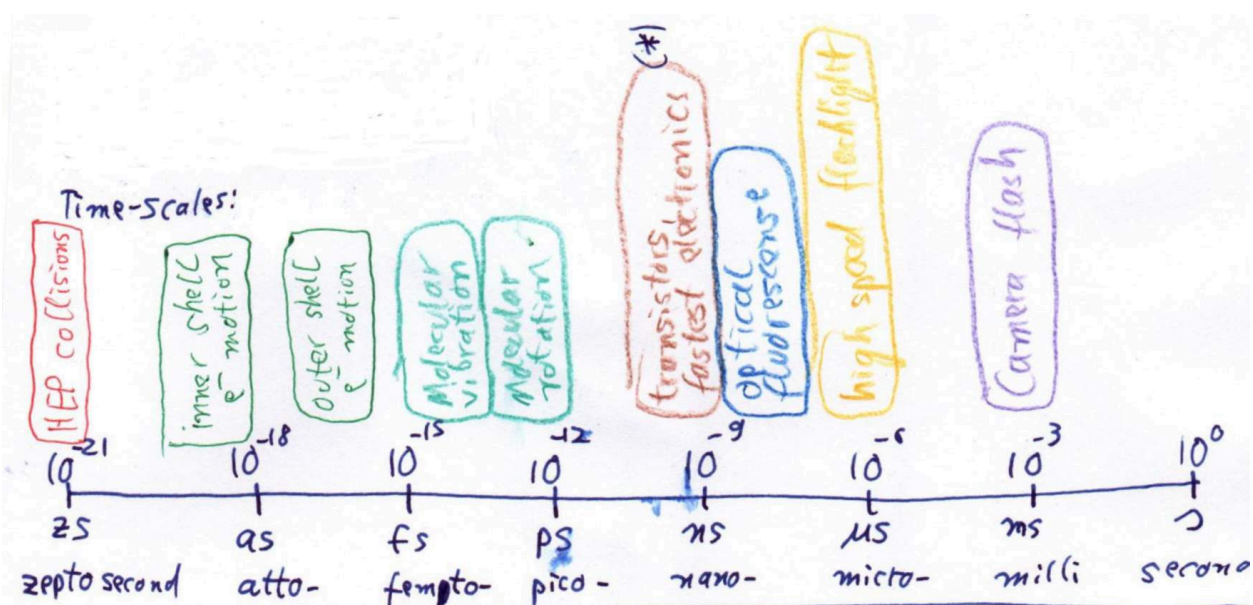 (*)
Time-scales:
HEP collisions
inner shell
e⁻ motion
outer shell
e⁻ motion
Molecular
vibration
Molecular
rotation
transistors,
fastest electronics
optical
fluorescense
high speed flashlight
Camera flash
10⁻²¹ 10⁻¹⁸ 10⁻¹⁵ 10⁻¹² 10⁻⁹ 10⁻⁶ 10⁻³ 10⁰
zs as fs ps ns μs ms s
zepto second atto- fempto- pico- nano- micro- milli second